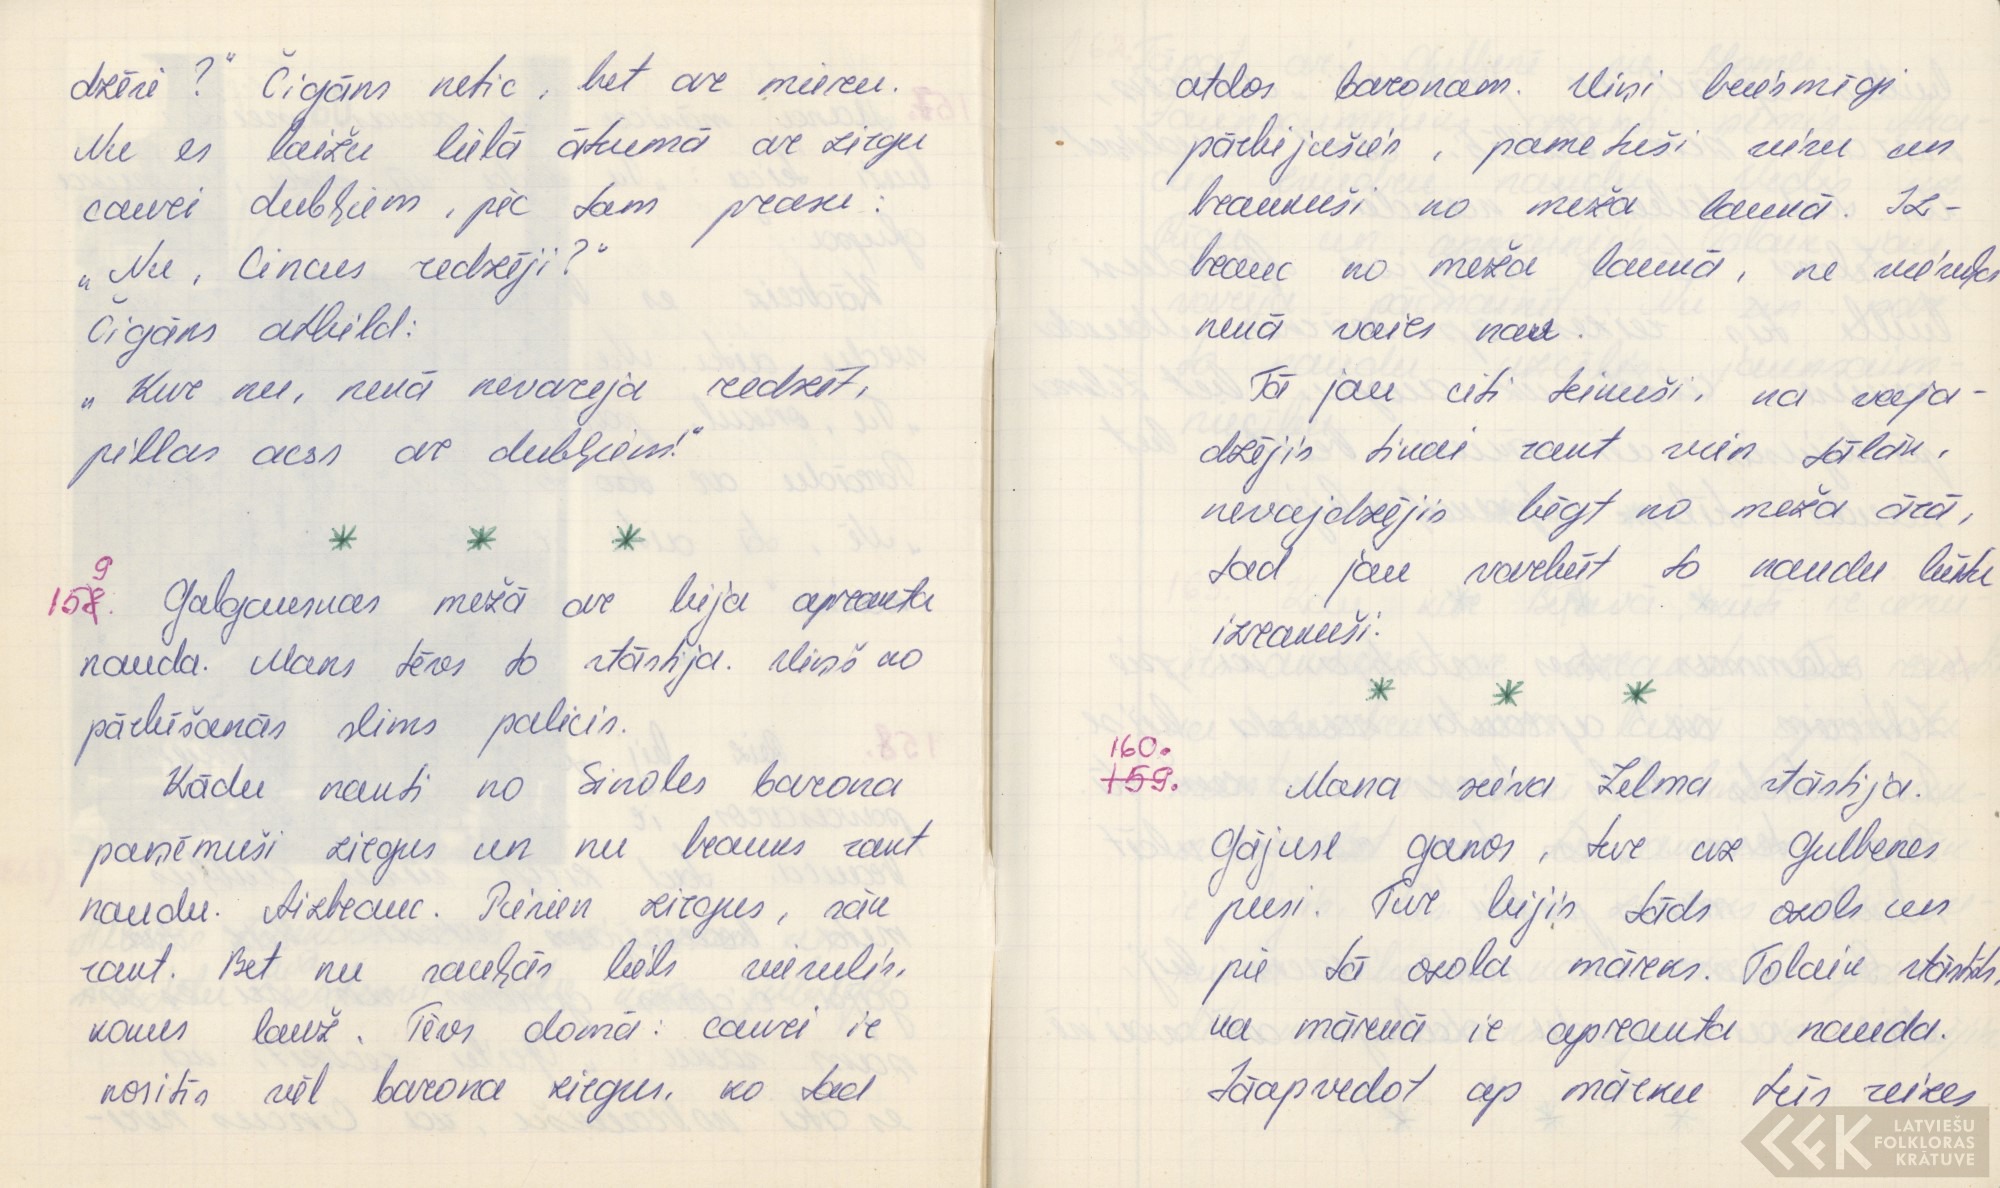 dzēri?" Čigāns netic, bet ar mieru.
Nu es laižu lielā ātumā ar zirgu
cauri dubļiem, pēc tam prasu:
„Nu, Cinaus redzēji?"
Čigāns atbild:
„Kur nu, nekā nevareja redzēt,
pillas acss ar dubļiem!"
* * *
9
158. Galgauskas mežā ar bija aprakta
nauda. Maks tēvs to stāstija. Viņš no
pārbīšanās slims palicis.
Kādu nakti no Sinoles barona
paņēmuši zirgus un nu brauks rakt
naudu. Aizbrauc. Piesien zirgus, sāk
rakt. Bet nu saceļās liels viesulis,
kokus lauž. Tēvs domā: cauri ir
nositīs vēl barona zirgus, ko tad
atdos baronam. Viņi briesmīgi
pārbijušies, pametuši visu un
braukuši no meža laukā. Iz-
brauc no meža laukā, ne viesuļa
nekā vairs nau.
Tā jau citi teikuši, ka vaja-
dzējis tikai rakt vien tālāk,
nevajdzējis bēgt no meža ārā,
tad jau varbūt to naudu būtu
izrakuši.
* * *
160.
159. Mana sieva Zelma stāstija.
Gājuse ganos, tur uz Gulbenes
pusi. Tur bijis tāds ozols un
pie tā ozola mārks. Tolaik stāstīts,
ka mārkā ir aprakta nauda.
Jāapvedot ap mārku trīs reizes
LATVIEŠU
FOLKLORAS
KRĀTUVE